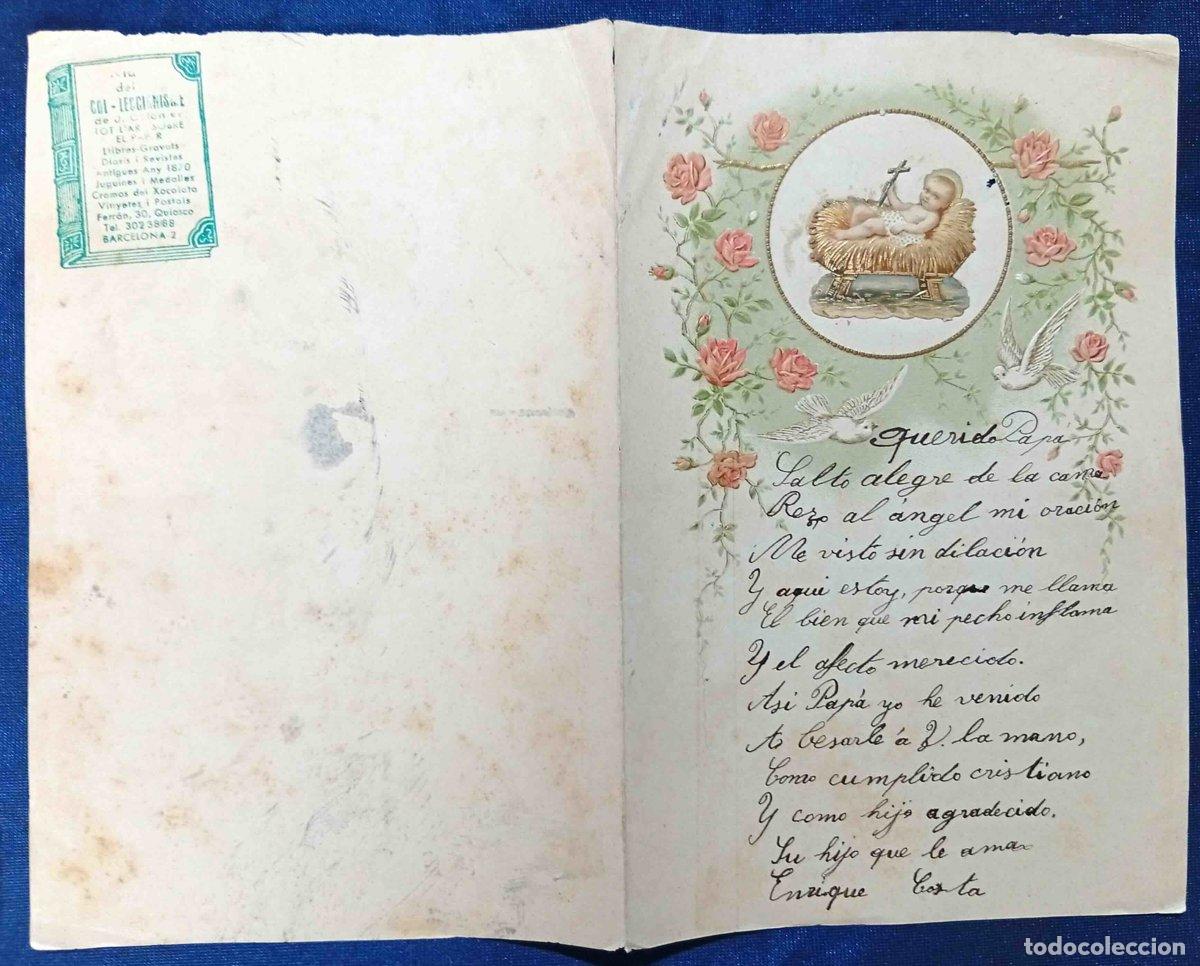 del
COL-LECCIONISTA
de J. C.
TOT L'ART SOBRE
EL PAPER
Llibres-Gravats
Diaris i Revistes
Antigues Any 1870
Juguines i Medalles
Cromos del Xocolata
Vinyetes i Postals
Ferrán, 30, Quiosco
Tel. 302 38 68
BARCELONA 2
Querido Papá
Salto alegre de la cama
Rezo al ángel mi oración
Me visto sin dilación
Y aqui estoy, porque me llama
El bien que mi pecho inflama
Y el afecto merecido.
Asi Papá yo he venido
A besarle á V. la mano,
Como cumplido cristiano
Y como hijo agradecido.
Su hijo que le ama
Enrique Costa
todocoleccion